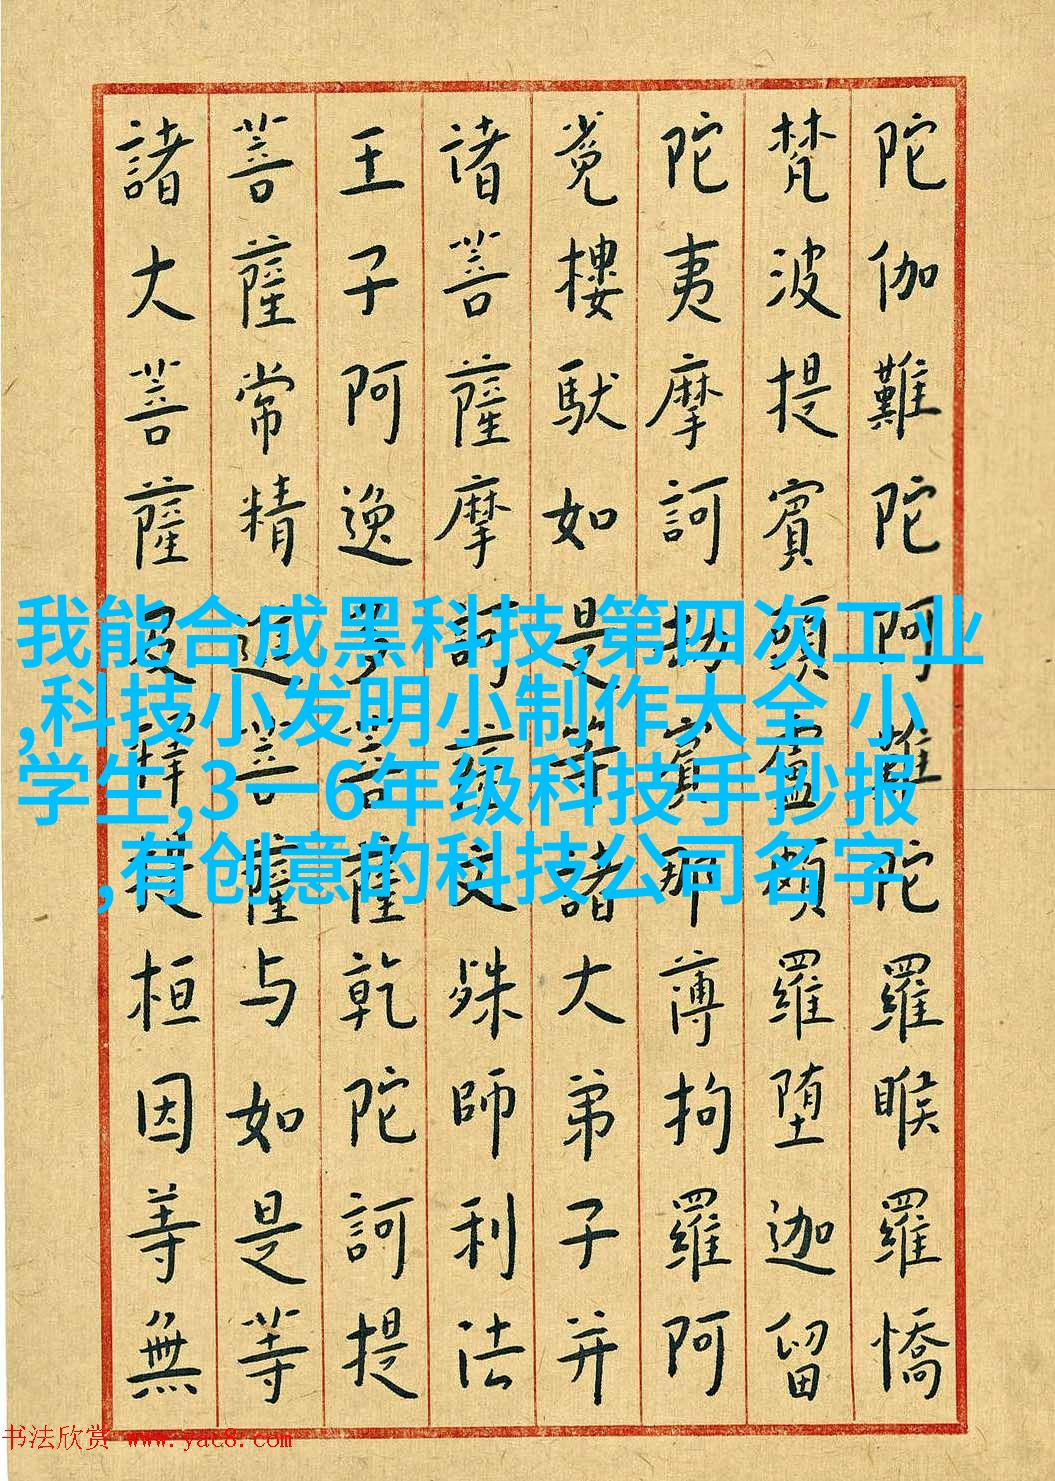 陀伽難陀阿難陀羅睺羅憍
梵波提賓頭盧頗羅堕迦留
陀夷摩訶劫賓那薄拘羅阿
樓馱如是等諸大弟子并
诸菩薩摩訶薩文殊師利法
王子阿逸多菩薩乾陀訶提
菩薩常精進菩薩与如是等
諸大菩薩及釋提桓因等無
我能合成黑科技,第四次工业
,科技小发明小制作大全 小
学生,3一6年级科技手抄报
,有创意的科技公司名字
书法欣赏 www.yac8.com